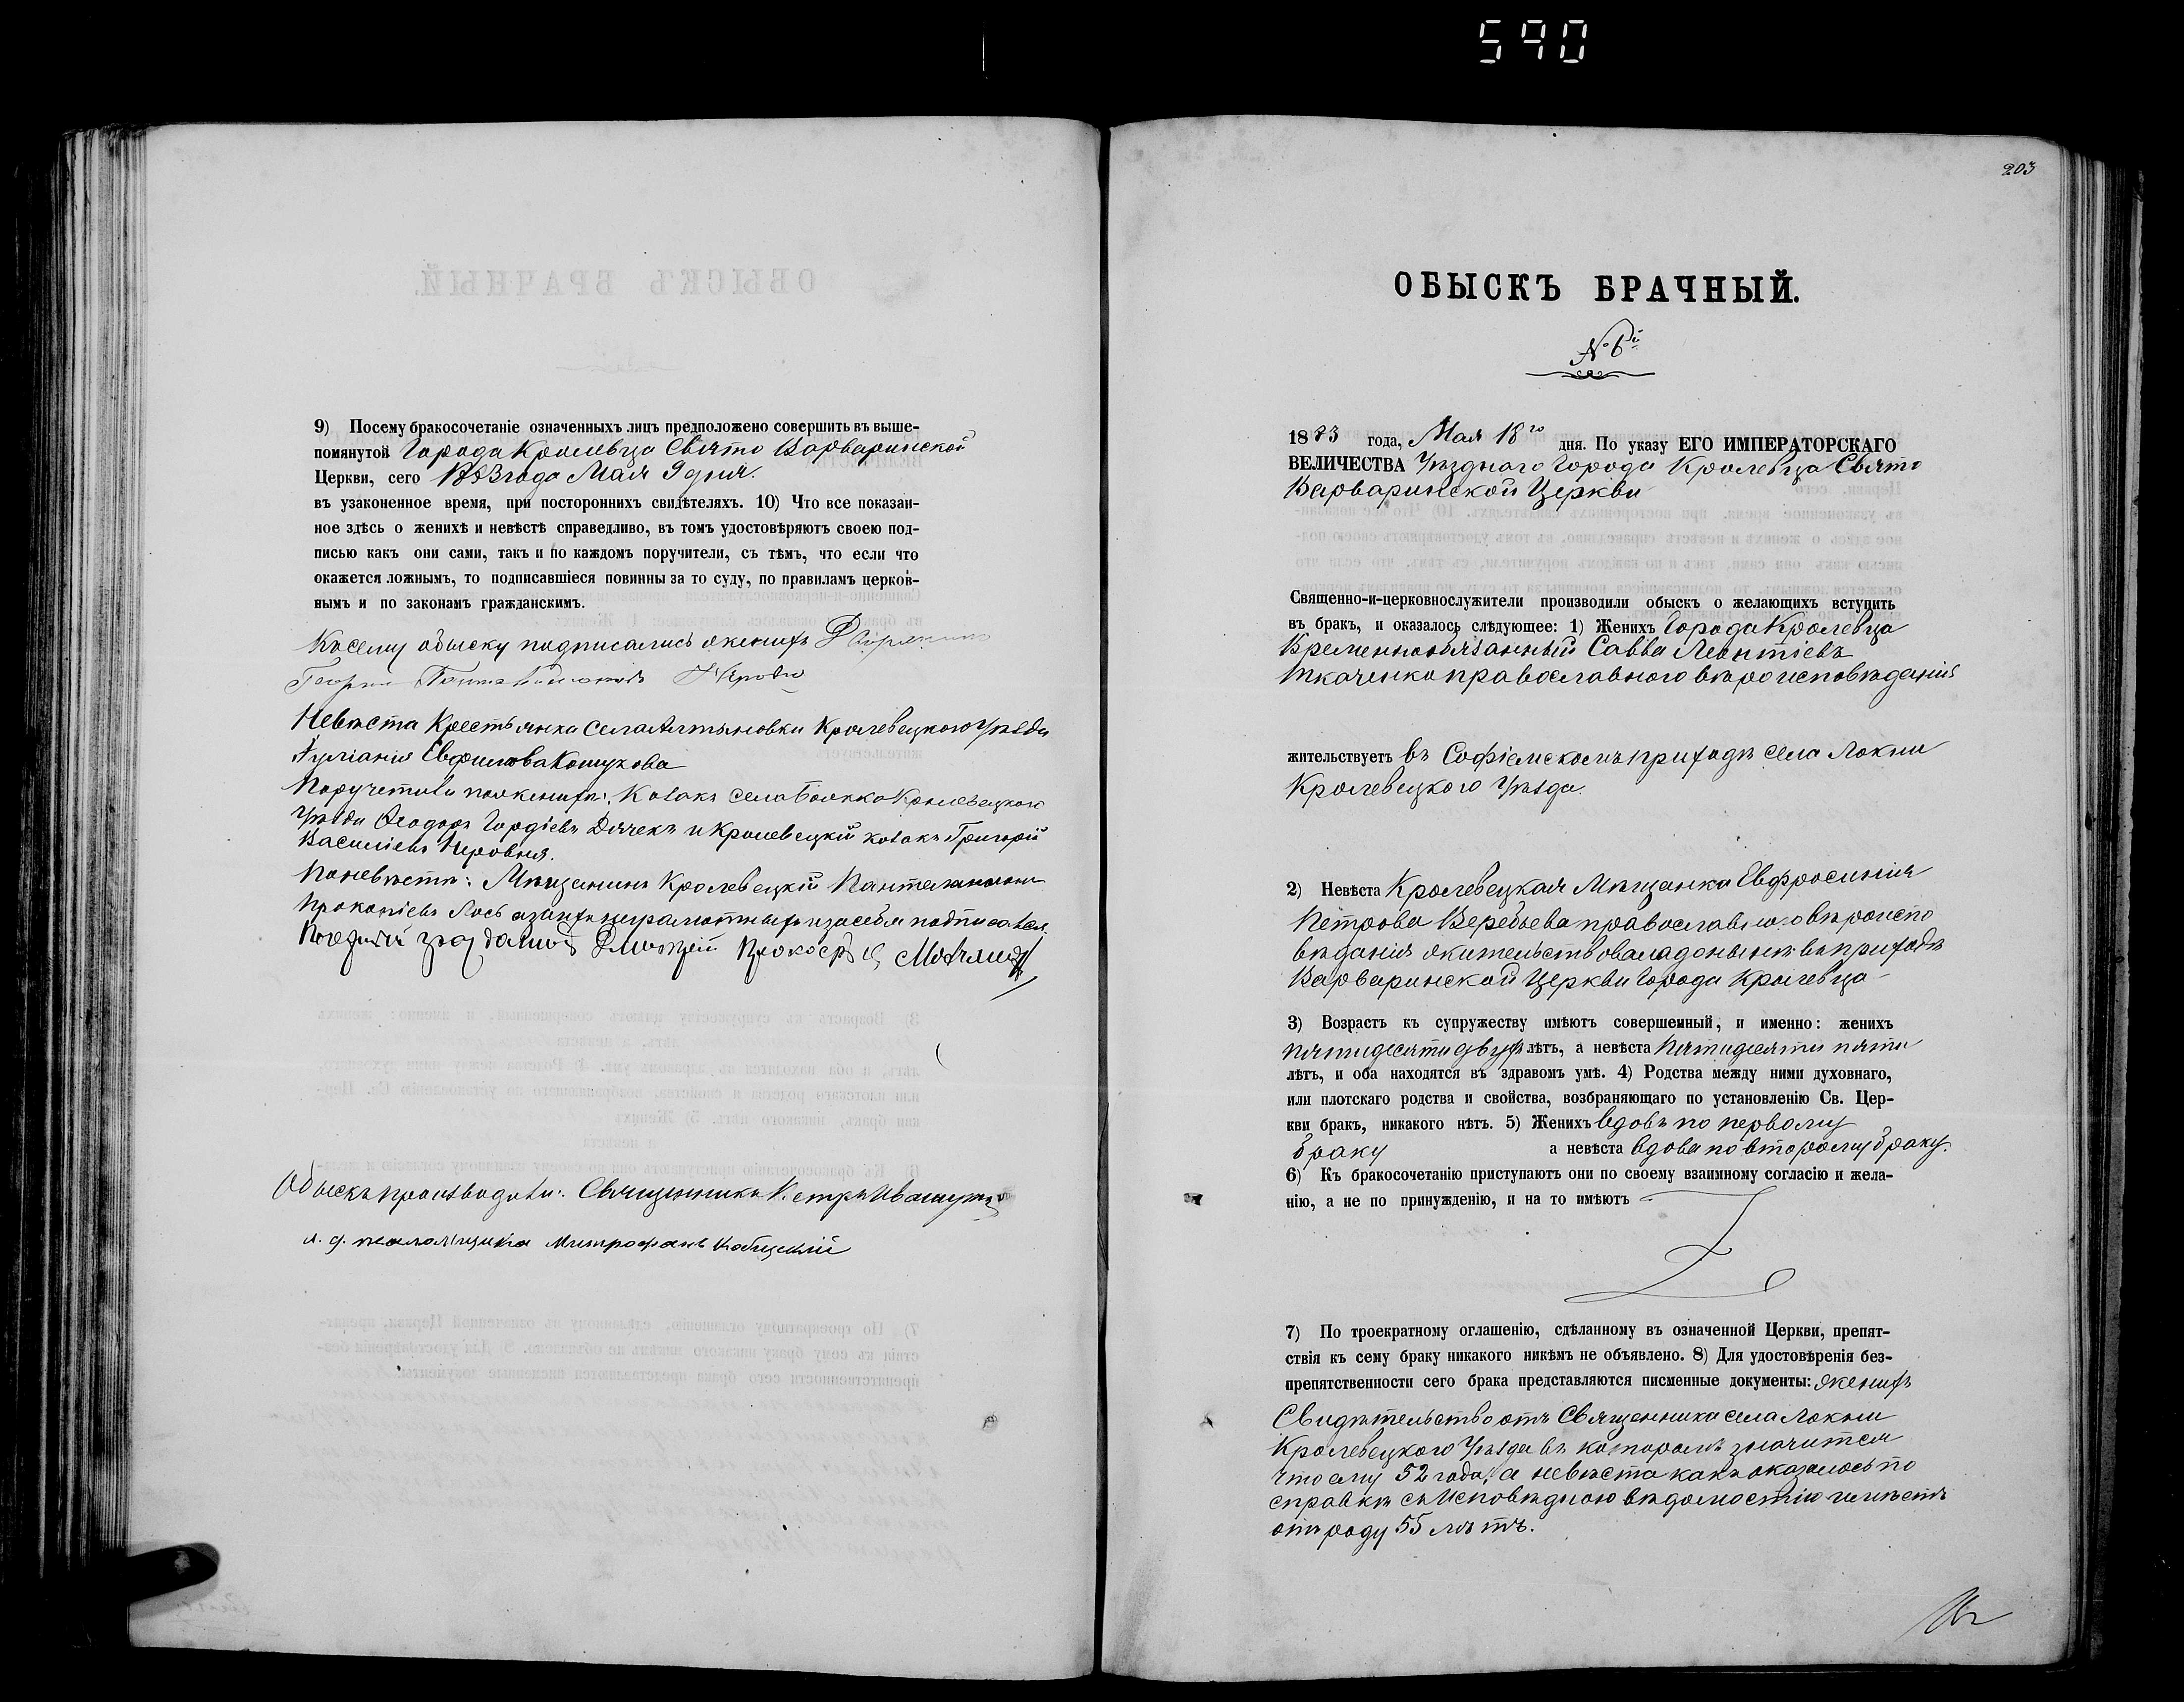 590
9) Посему бракосочетаніе означенныхъ лицъ предположено совершить въ выше-
помянутой Города Кролевца Свято Варваринской
Церкви, сего 1883 года Мая 9 дня.
въ узаконенное время, при постороннихъ свидѣтеляхъ. 10) Что все показан-
ное здѣсь о женихѣ и невѣстѣ справедливо, въ томъ удостовѣряютъ своею под-
писью какъ они сами, такъ и по каждомъ поручители, съ тѣмъ, что если что
окажется ложнымъ, то подписавшіеся повинны за то суду, по правиламъ церков-
нымъ и по законамъ гражданскимъ.
Къ сему обыску подписались женихъ
Невѣста Крестьянка Села Алтыновки Кролевецкого Уѣзда
Иуліанія Евфимова
Поручители по женихѣ: Козакъ села Кролевецкого
Уѣзда Ѳеодоръ Гордіевъ Дячекъ и Кролевецкій козакъ Григорій
Василіевъ
По невѣстѣ: Мѣщанинъ Кролевецкій Пантелеимонъ
Прокопіевъ Лось а за ихъ неграмотныхъ и за себя подписался
Обыскъ производили: Священникъ Петръ
и. д. псаломщика Митрофанъ
203
ОБЫСКЪ БРАЧНЫЙ.
№ 6й
1883 года, Мая 18го дня. По указу ЕГО ИМПЕРАТОРСКАГО
ВЕЛИЧЕСТВА Уѣзднаго Города Кролевца Свято
Варваринской Церкви
Священно-и-церковнослужители производили обыскъ о желающихъ вступить
въ бракъ, и оказалось слѣдующее: 1) Женихъ Города Кролевца
Временнообязанный Савва Леонтіевъ
Ткаченко православного вѣроисповѣданія
жительствуетъ въ Софіемскомъ приходѣ села Локни
Кролевецкого Уѣзда.
2) Невѣста Кролевецкая Мѣщанка Евфросинія
Петрова Веребьева православного вѣроиспо
вѣданія жительствовала донынѣ въ приходѣ
Варваринской Церкви Города Кролевца
3) Возрастъ къ супружеству имѣютъ совершенный, и именно: женихъ
пятидесяти двухъ лѣтъ, а невѣста пятидесяти пяти
лѣтъ, и оба находятся въ здравомъ умѣ. 4) Родства между ними духовнаго,
или плотскаго родства и свойства, возбраняющаго по установленію Св. Цер-
кви бракъ, никакого нѣтъ. 5) Женихъ вдовъ по первому
браку а невѣста вдова по второму браку.
6) Къ бракосочетанію приступаютъ они по своему взаимному согласію и жела-
нію, а не по принужденію, и на то имѣютъ
7) По троекратному оглашенію, сдѣланному въ означенной Церкви, препят-
ствія къ сему браку никакого никѣмъ не объявлено. 8) Для удостовѣренія без-
препятственности сего брака представляются писменные документы: женихъ
Свидѣтельство отъ Священника села Локни
Кролевецкого Уѣзда въ которомъ значится
что ему 52 года, а невѣста какъ оказалось по
справкѣ съ Исповѣдною вѣдомостію имѣетъ
отъ роду 55 лѣтъ.